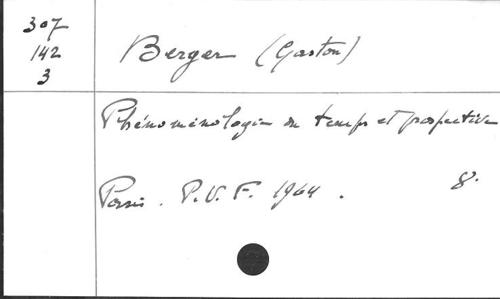 307
142
3
Berger (Gaston)
Phénoménologie du temps et prospective
Paris. P.U.F. 1964. 8°